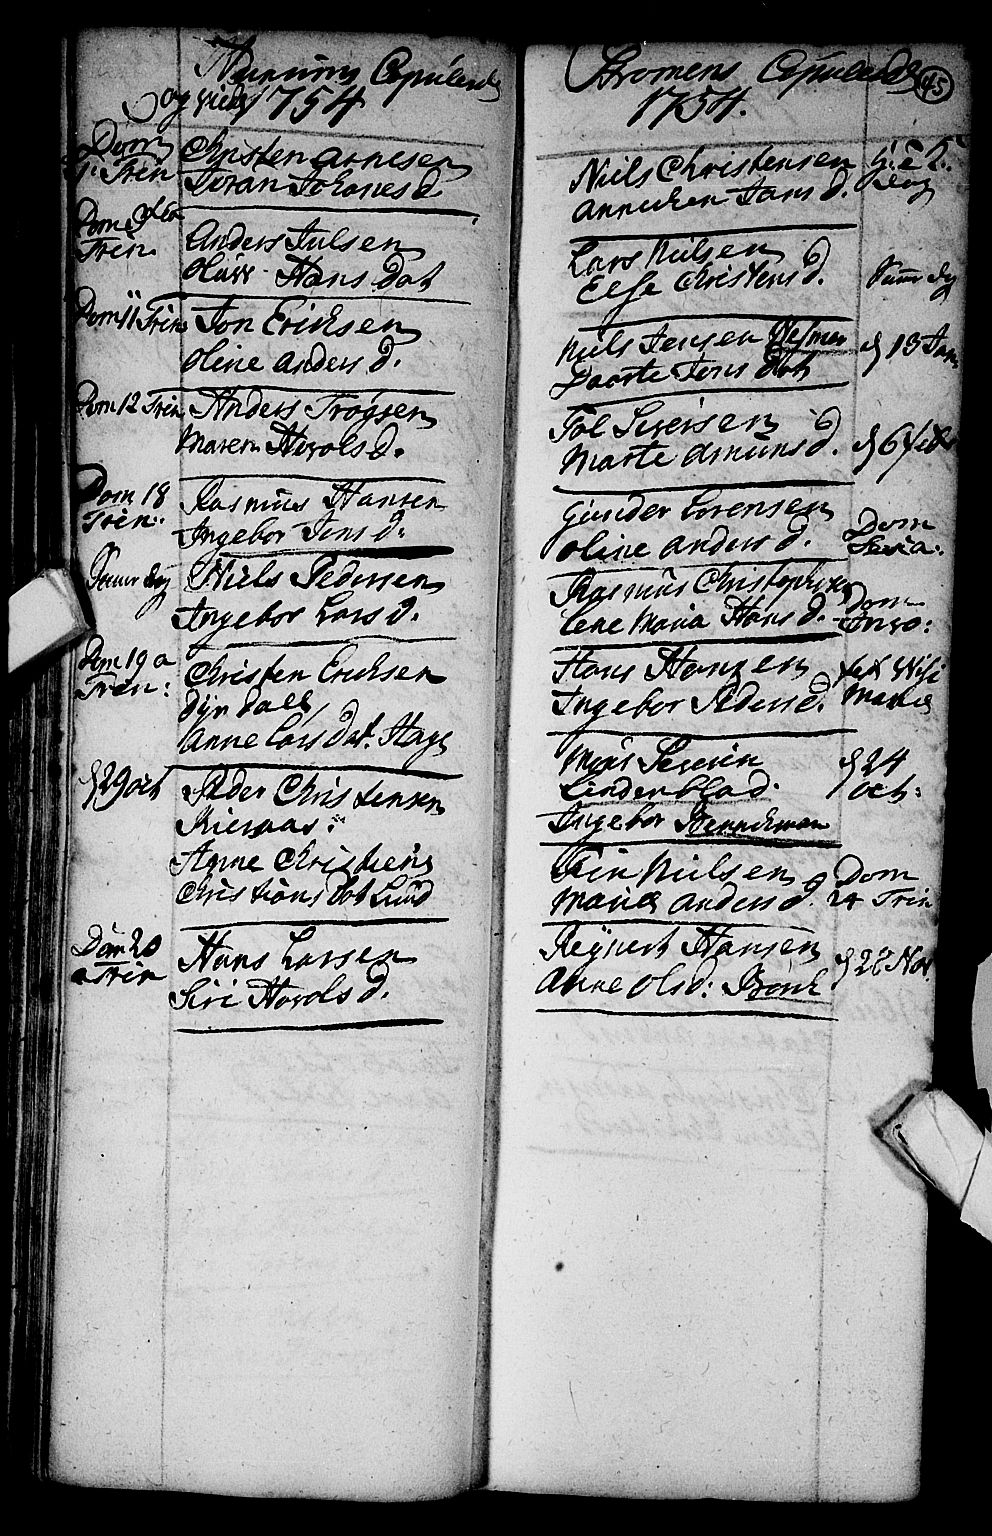 Copulerede
og viede 1754
Dom
7. Trin
Christen Arnesen
Joran Johanes d.
Trin.
Anders Julsen
Hans Dat
Dom 11 Trin
Jon Ericksen
Oline Anders d.
Dom 12 Trin
Anders Trogsen
Maren Havols d.
Dom 18
Trin:
Rasmus Hansen
Ingebor Jens d:
Niels Pedersen
Ingebor Lars d.
Dom 19 a
Trin:
Christen Ericksen
Dÿndall
Anne Lars dat. Hage
d 29 oct
Peder Christensen
Anne Christiens
Christians dat Lund
Dom 20
a Trin
Hans Larsen
Siri Havols d.
Bromens Copulerede
1754.
45
Niels Christensen
Annichen Jans d.
dag
Lars Nielsen
Else Christens d.
Niels Jensen
Daarte Jens dat
d 13 Jan
Tol Seversen
Marte Amuns d.
d 6 feb
Gunder Lorensen
Oline Anders d.
Dom
Rasmus Christophersen
Lene Maria Hans d.
Dom
Invo:
Hans Hansen
Ingebor Peders d.
fest Visi
Maria
Severin
Linderblad.
Ingebor
d 24
oct:
Fin Nielsen
Maria Anders d.
Dom
24 Trin
Reÿnert Hansen
Anne Ols d:
d 28 Nov